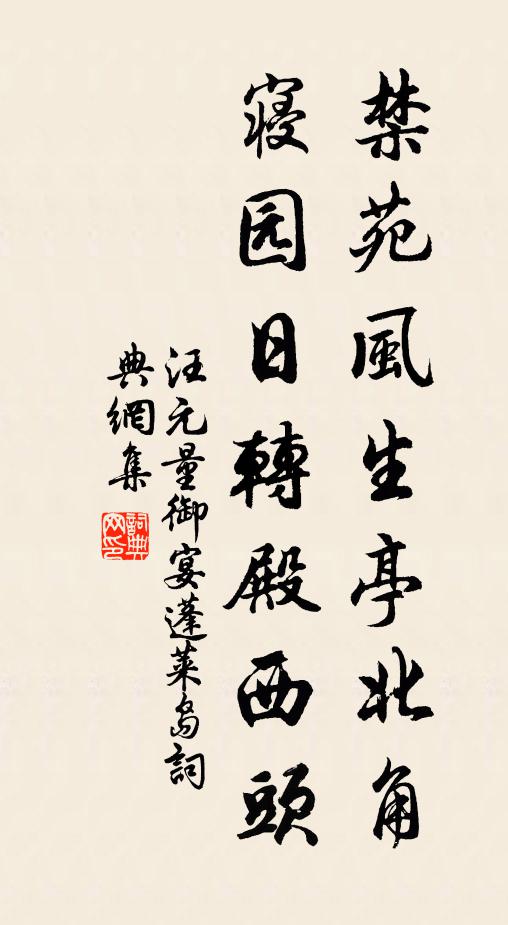 禁苑風生亭北角
寝园日轉殿西頭
汪元量御宴蓬莱島詞
典網集
詞典网印